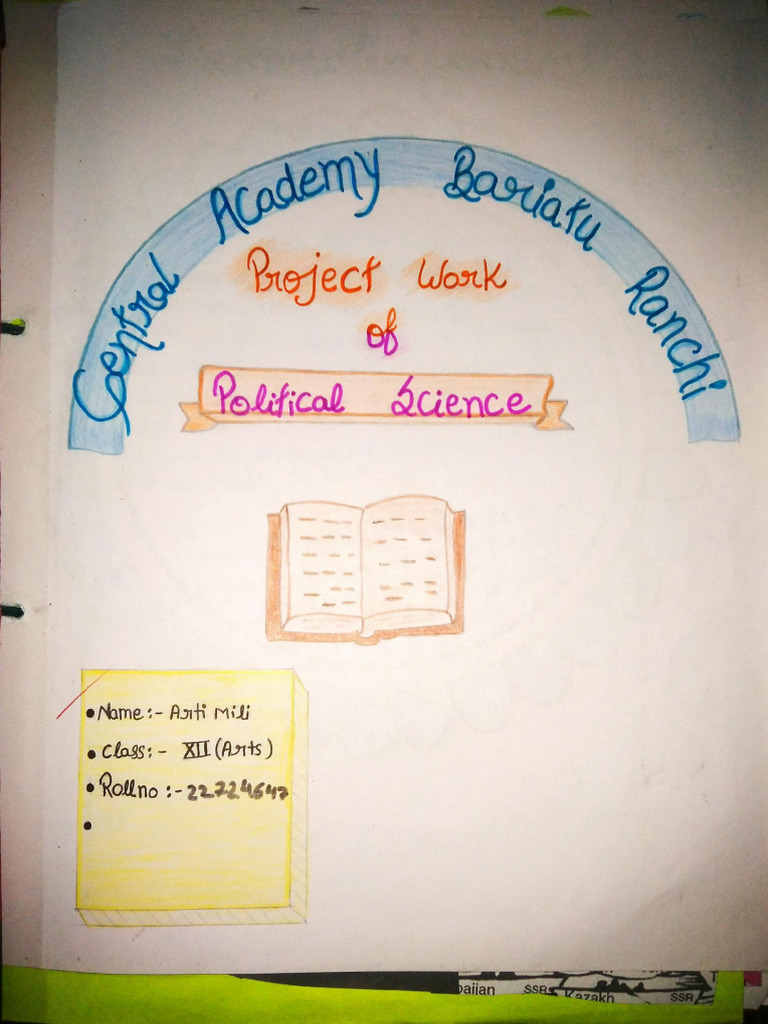 Central Academy Bariatu Ranchi
Project Work
of
Political Science
• Name:- Arti Mili
• Class:- XII (Arts)
• Rollno :- 22724647
•
Daijan SSR Kazakh SSR